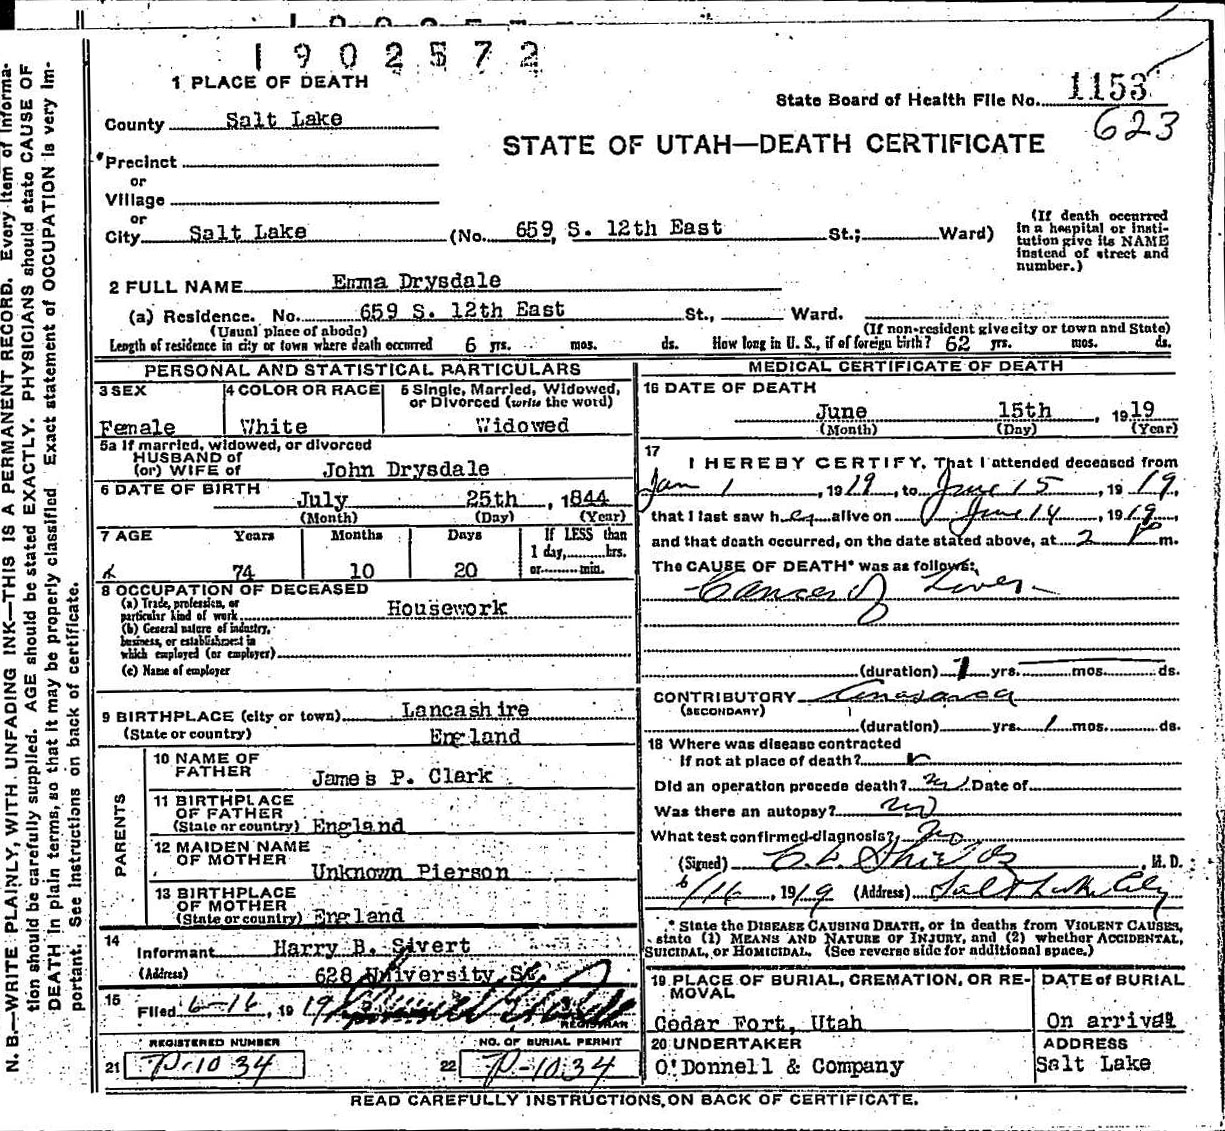 1902572
1 PLACE OF DEATH
State Board of Health File No. 1153
623
County Salt Lake
STATE OF UTAH—DEATH CERTIFICATE
*Precinct
or
Village
or
City Salt Lake (No. 659 S. 12th East St.; Ward)
(If death occurred
in a hospital or insti-
tution give its NAME
instead of street and
number.)
2 FULL NAME Emma Drysdale
(a) Residence. No. 659 S. 12th East St., Ward.
(Usual place of abode) (If non-resident give city or town and State)
Length of residence in city or town where death occurred 6 yrs. mos. ds. How long in U. S., if of foreign birth? 62 yrs. mos. ds.
PERSONAL AND STATISTICAL PARTICULARS
3 SEX 4 COLOR OR RACE 5 Single, Married, Widowed,
or Divorced (write the word)
Female White Widowed
5a If married, widowed, or divorced
HUSBAND of
(or) WIFE of John Drysdale
6 DATE OF BIRTH
July 25th, 1844
(Month) (Day) (Year)
7 AGE Years Months Days If LESS than
1 day, hrs.
74 10 20 or min.
8 OCCUPATION OF DECEASED
(a) Trade, profession, or
particular kind of work Housework
(b) General nature of industry,
business, or establishment in
which employed (or employer)
(c) Name of employer
9 BIRTHPLACE (city or town) Lancashire
(State or country) England
PARENTS
10 NAME OF
FATHER James P. Clark
11 BIRTHPLACE
OF FATHER
(State or country) England
12 MAIDEN NAME
OF MOTHER Unknown Pierson
13 BIRTHPLACE
OF MOTHER
(State or country) England
14
Informant Harry B. Sivert
(Address) 628 University St.
15
Filed 6-16, 1919
REGISTRAR
REGISTERED NUMBER NO. OF BURIAL PERMIT
21 P-1034 22 P-1034
MEDICAL CERTIFICATE OF DEATH
16 DATE OF DEATH
June 15th, 1919
(Month) (Day) (Year)
17
I HEREBY CERTIFY, That I attended deceased from
Jan 1, 1919, to June 15, 1919,
that I last saw her alive on June 14, 1919,
and that death occurred, on the date stated above, at 2 P m.
The CAUSE OF DEATH* was as follows:
Cancer of Liver
(duration) 1 yrs. mos. ds.
CONTRIBUTORY Anasarca
(SECONDARY)
(duration) yrs. 1 mos. ds.
18 Where was disease contracted
If not at place of death?
Did an operation precede death? no Date of
Was there an autopsy? no
What test confirmed diagnosis? no
(Signed) , M. D.
6/16, 1919 (Address) Salt Lake City
* State the DISEASE CAUSING DEATH, or in deaths from VIOLENT CAUSES,
state (1) MEANS AND NATURE OF INJURY, and (2) whether ACCIDENTAL,
SUICIDAL, or HOMICIDAL. (See reverse side for additional space.)
19 PLACE OF BURIAL, CREMATION, OR RE-
MOVAL
DATE of BURIAL
Cedar Fort, Utah On arrival
20 UNDERTAKER ADDRESS
O'Donnell & Company Salt Lake
READ CAREFULLY INSTRUCTIONS, ON BACK OF CERTIFICATE.
N. B.—WRITE PLAINLY, WITH UNFADING INK—THIS IS A PERMANENT RECORD. Every item of informa-
tion should be carefully supplied. AGE should be stated EXACTLY. PHYSICIANS should state CAUSE OF
DEATH in plain terms, so that it may be properly classified. Exact statement of OCCUPATION is very im-
portant. See instructions on back of certificate.